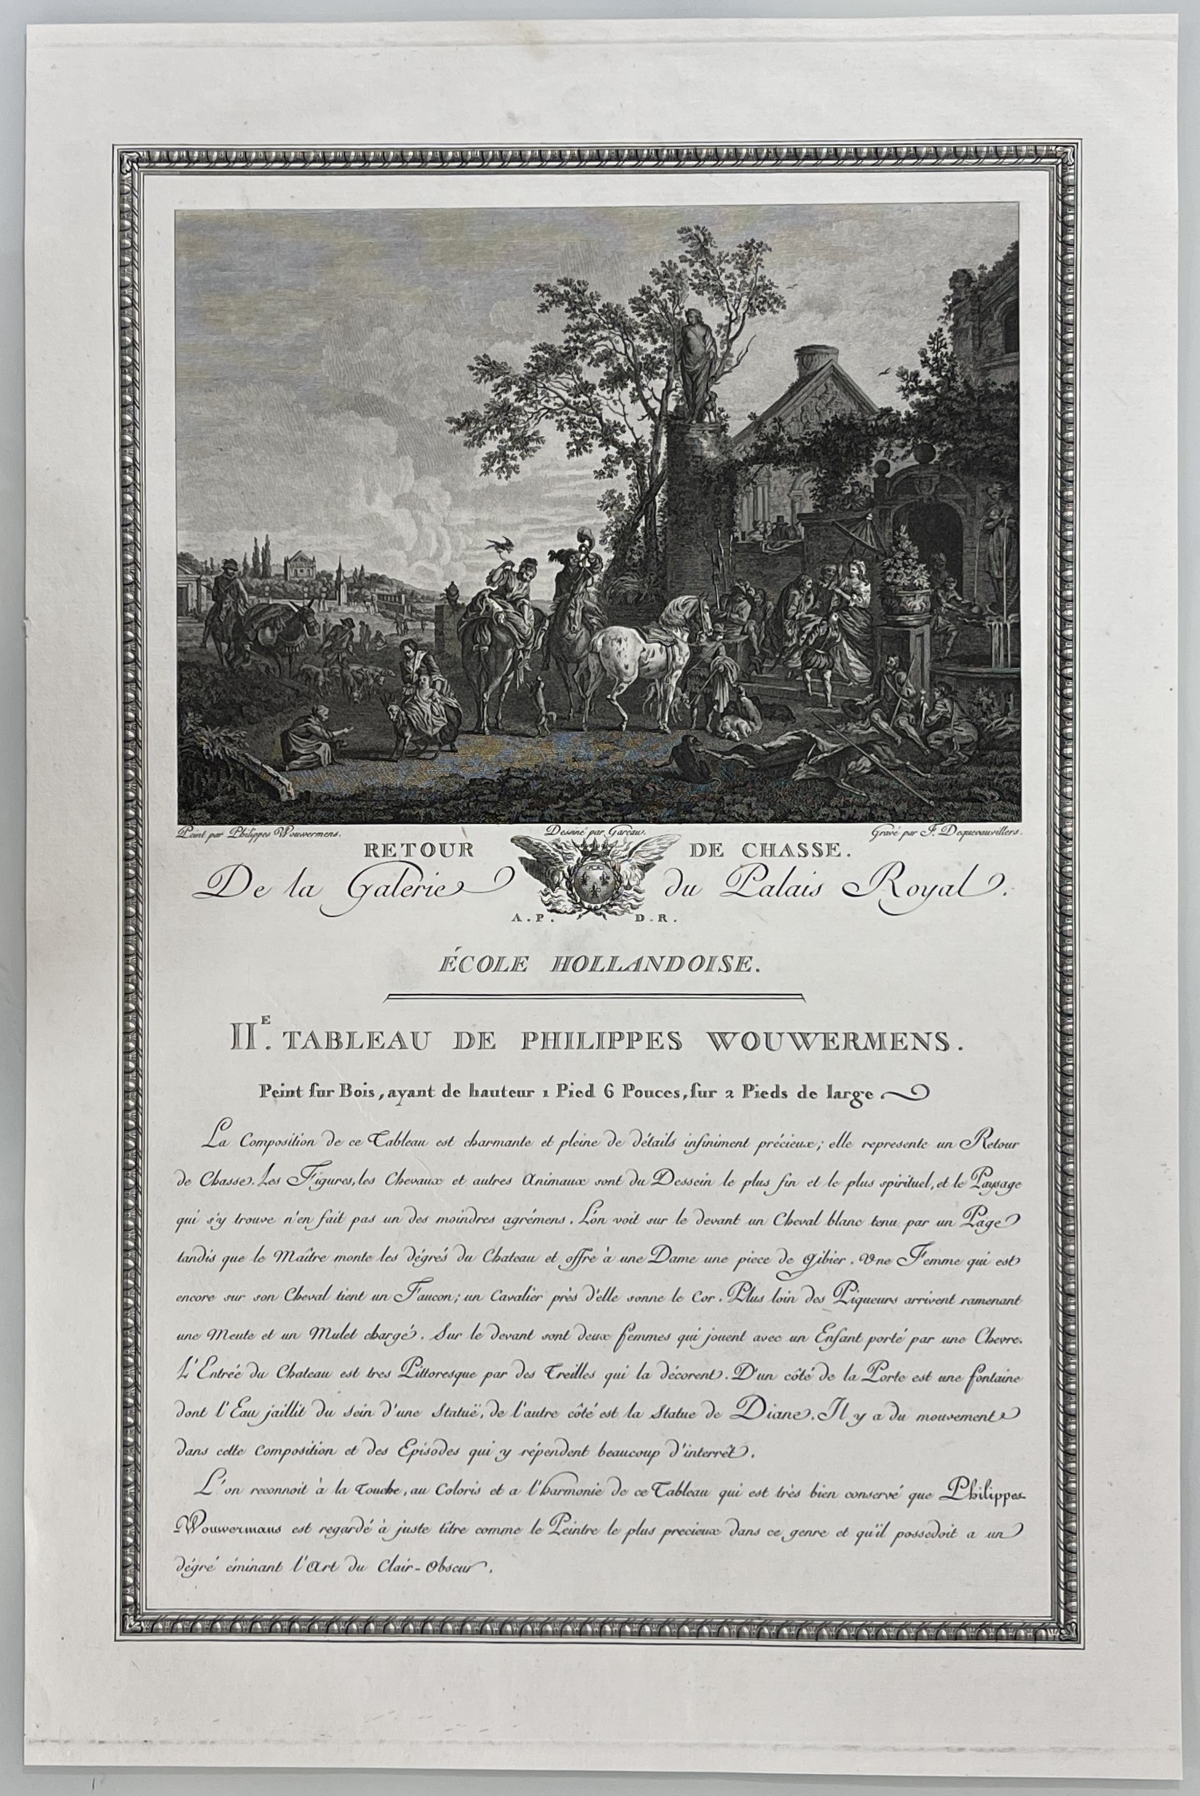 Peint par Philippes Wouwermens. Dessiné par Gareau. Gravé par F. Dequevauvillers.
RETOUR DE CHASSE.
De la Galerie du Palais Royal.
A.P. D.R.
ÉCOLE HOLLANDOISE.
IIE. TABLEAU DE PHILIPPES WOUWERMENS.
Peint sur Bois, ayant de hauteur 1 Pied 6 Pouces, sur 2 Pieds de large.
La Composition de ce Tableau est charmante et pleine de détails infiniment précieux; elle represente un Retour
de Chasse. Les Figures, les Chevaux et autres Animaux sont du Dessein le plus fin et le plus spirituel, et le Paysage
qui s'y trouve n'en fait pas un des moindres agrémens. L'on voit sur le devant un Cheval blanc tenu par un Page
tandis que le Maître monte les dégrés du Chateau et offre à une Dame une piece de Gibier. Une Femme qui est
encore sur son Cheval tient un Faucon; un Cavalier près d'elle sonne le Cor. Plus loin des Piqueurs arrivent ramenant
une Meute et un Mulet chargé. Sur le devant sont deux femmes qui jouent avec un Enfant porté par une Chevre.
L'Entrée du Chateau est tres Pittoresque par des Treilles qui la décorent. D'un côté de la Porte est une fontaine
dont l'Eau jaillit du sein d'une Statuë, de l'autre côté est la Statue de Diane. Il y a du mouvement
dans cette Composition et des Episodes qui y répendent beaucoup d'interrêt.
L'on reconnoit à la Touche, au Coloris et a l'harmonie de ce Tableau qui est très bien conservé que Philippes
Wouwermans est regardé à juste titre comme le Peintre le plus precieux dans ce genre et qu'il possedoit a un
dégré éminant l'Art du Clair-Obscur.